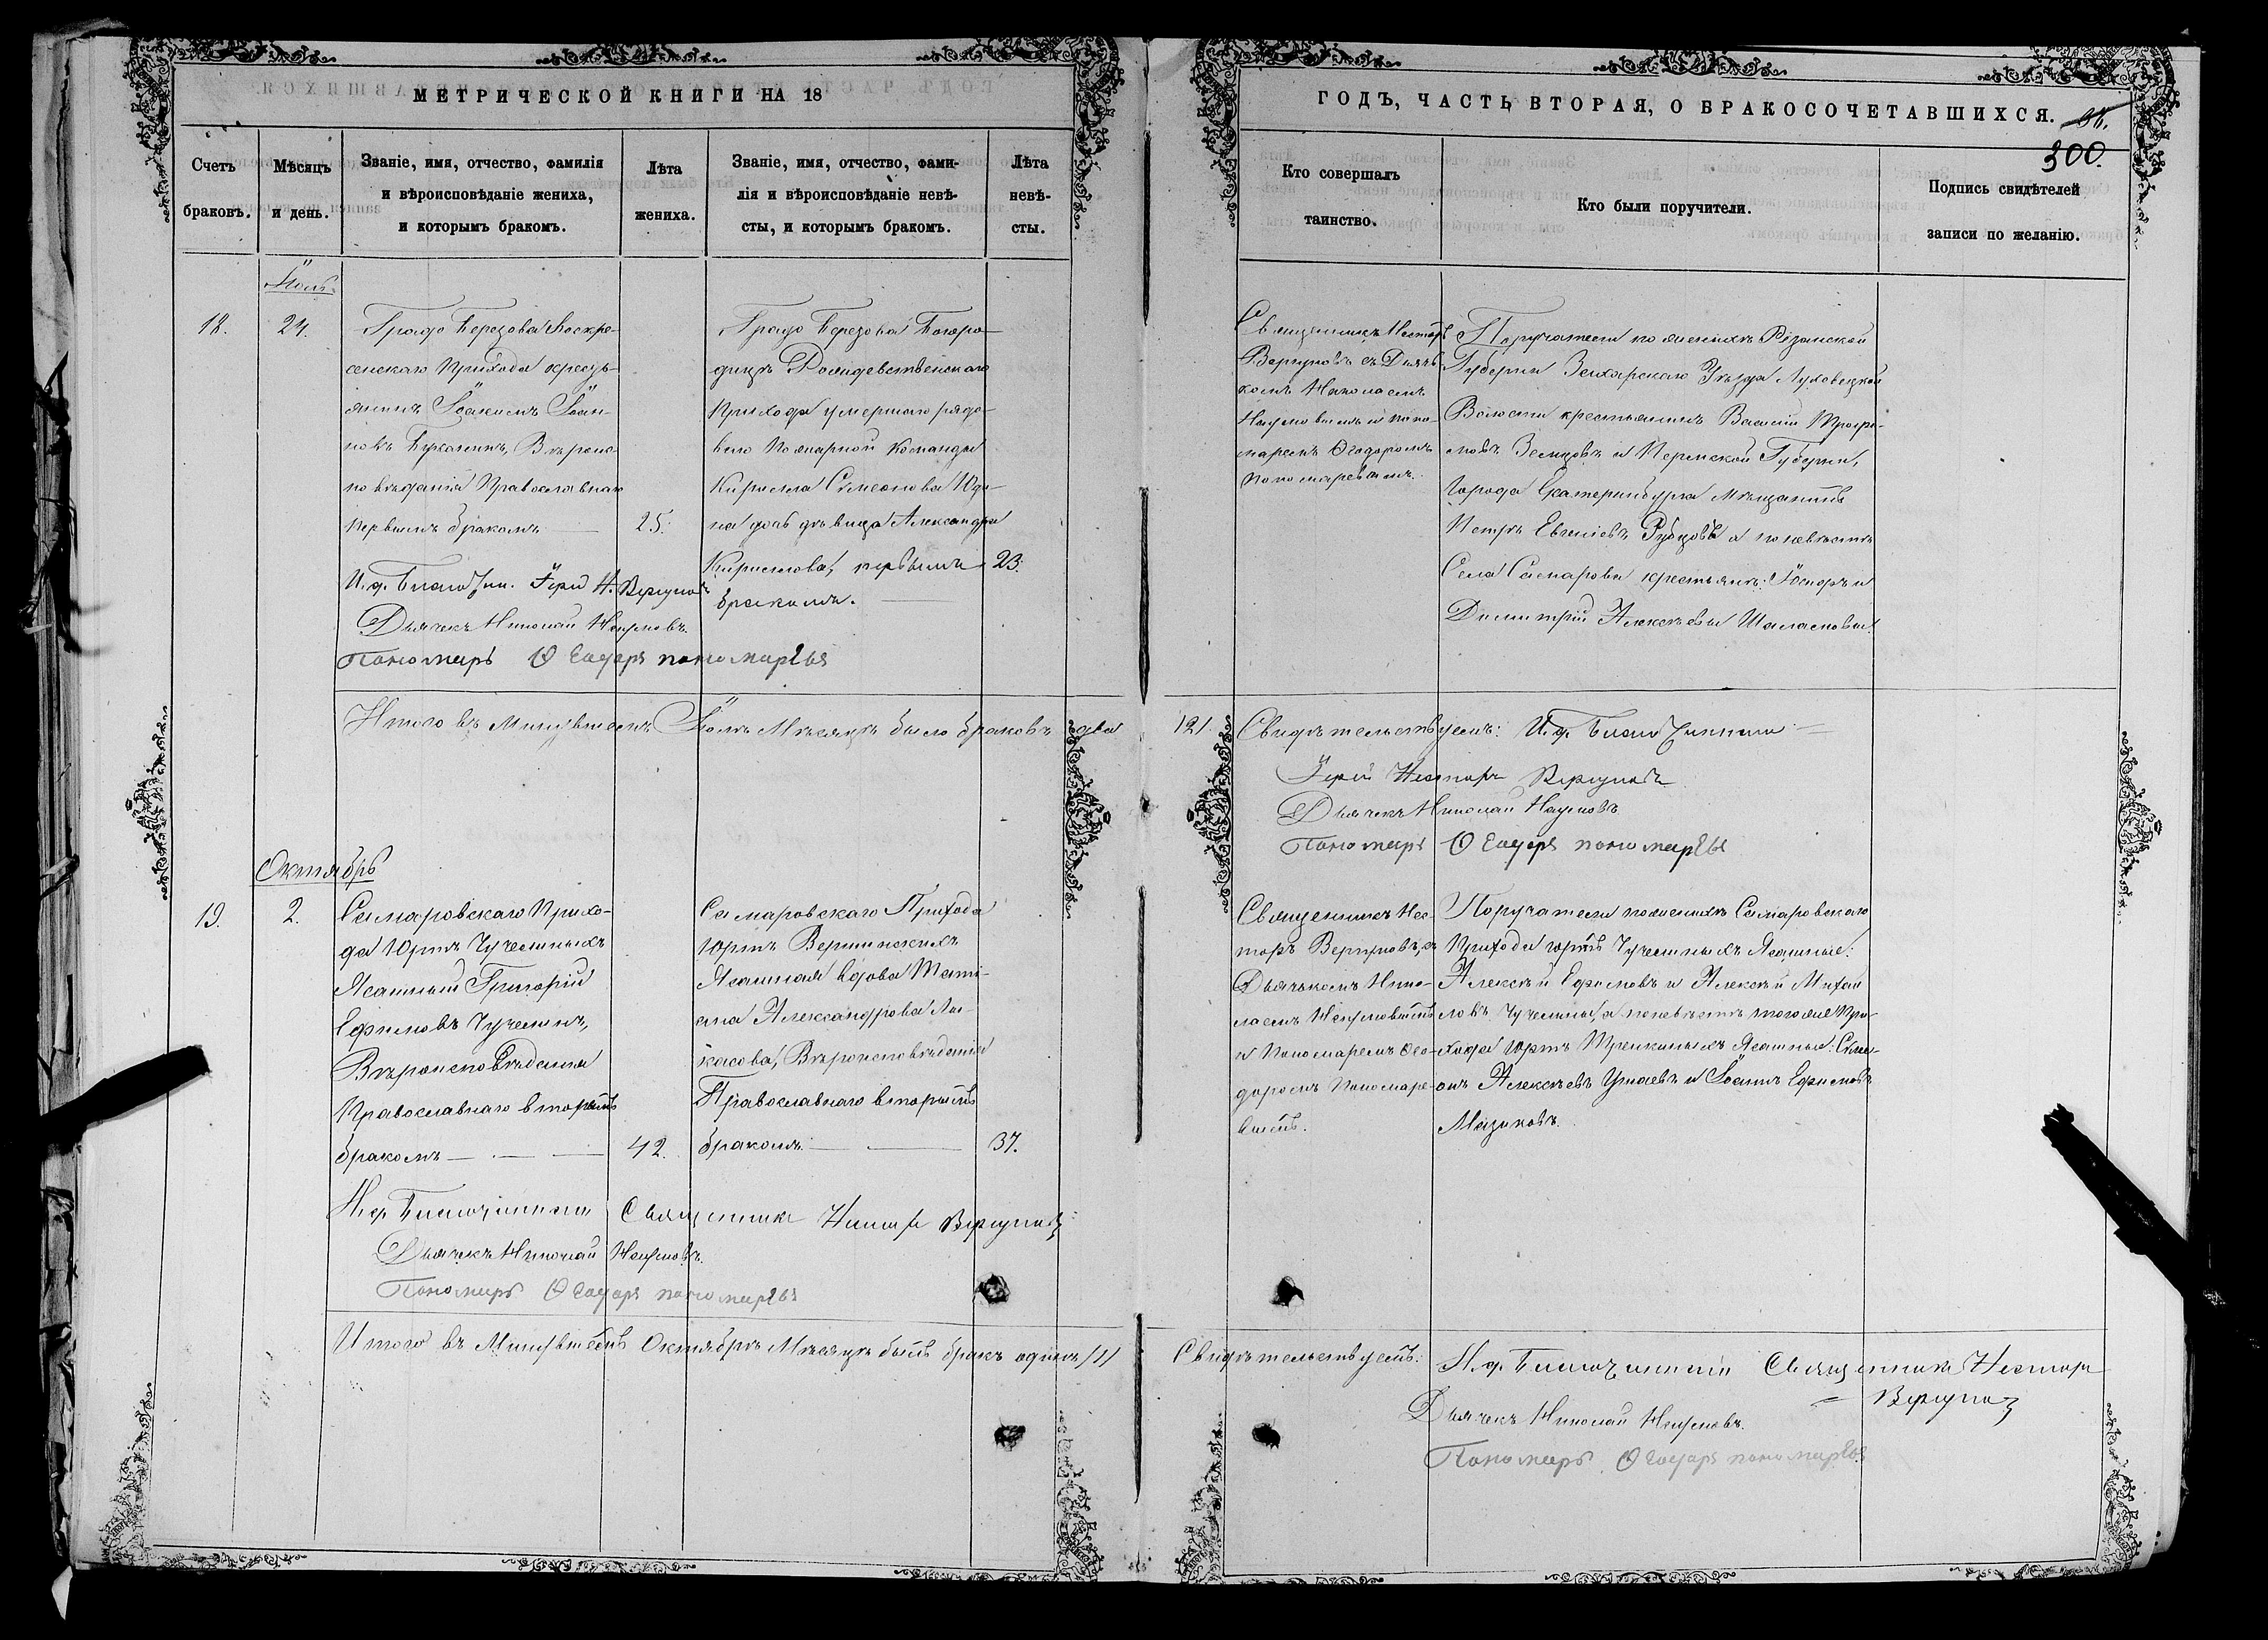 МЕТРИЧЕСКОЙ КНИГИ НА 18
Счетъ браковъ.
Мѣсяцъ и день.
Званіе, имя, отчество, фамилія
и вѣроисповѣданіе жениха,
и которымъ бракомъ.
Лѣта
жениха.
Званіе, имя, отчество, фами-
лія и вѣроисповѣданіе невѣ-
сты, и которымъ бракомъ.
Лѣта
невѣ-
сты.
18.
24.
Града Березова Воскре-
сенскаго Прихода кресть-
янинъ Іоакимъ Іоан-
новъ Вѣроис-
повѣданія Православнаго
первымъ бракомъ
25.
И. д. Благочин. Іерей Н. Вергуновъ
Дьячекъ Николай Наумовъ.
Пономарь Ѳеодоръ пономаревъ
Града Березова Богоро-
дице Рождественскаго
Прихода умершаго рядо-
ваго Пожарной Команды
Кирилла Симеонова
дочь дѣвица Александра
Кириллова, первымъ
бракомъ.
23.
Итого въ Минувшемъ Іюлѣ Мѣсяцѣ было браковъ два
Октябрь
19.
2.
Самаровскаго Прихо-
да Юртъ Чучелиныхъ
Ясашный Григорій
Ефимовъ Чучелинъ,
Вѣроисповѣданія
Православнаго вторымъ
бракомъ
42.
Самаровскаго Прихода
Юртъ
Ясашная вдова Тати-
ана Александрова
Вѣроисповѣданія
Православнаго вторымъ
бракомъ.
37.
И. д. Благочиннаго Священникъ Несторъ Вергуновъ
Дьячекъ Николай Наумовъ.
Пономарь Ѳеодоръ пономаревъ
Итого въ Минувшемъ Октябрѣ Мѣсяцѣ былъ бракъ одинъ /1/
ГОДЪ, ЧАСТЬ ВТОРАЯ, О БРАКОСОЧЕТАВШИХСЯ.
300.
Кто совершалъ
таинство.
Кто были поручители.
Подпись свидѣтелей
записи по желанію.
Священникъ Несторъ
Вергуновъ съ Дьяч-
комъ Николаемъ
Наумовымъ и Поно-
маремъ Ѳеодоромъ
Пономаревымъ.
Поручатели по женихѣ Рязанской
Губерніи Зенхарскаго Уѣзда Луховецкой
Волости крестьянинъ Василій Трофи-
мовъ Земцовъ и Пермской Губерніи,
города Екатеринбурга Мѣщанинъ
Петръ Евгеніевъ Рубцовъ а по невѣстѣ
Села Самарова крестьяне: Іосифъ и
Димитрій Алексѣевы Шаламовы.
Свидѣтельствуемъ: И. д. Благочиннаго
Іерей Несторъ Вергуновъ
Дьячекъ Николай Наумовъ
Пономарь Ѳеодоръ пономаревъ
Священникъ Нес-
торъ Вергуновъ, съ
Дьячькомъ Нико-
лаемъ Наумовымъ
и Пономаремъ Ѳео-
доромъ Пономаре-
вымъ.
Поручатели по женихѣ Самаровскаго
Прихода юртъ Чучелиныхъ Ясашные:
Алексѣй Ефимовъ и Алексѣй Михай
ловъ Чучелины а по невѣстѣ того же При-
хода Юртъ Тренкиныхъ Ясашные: Симе-
онъ Алексѣевъ и Ефимовъ
Мазиковъ.
Свидѣтельствуемъ: И. д. Благочиннаго Священникъ Несторъ
Вергуновъ
Дьячекъ Николай Наумовъ.
Пономарь Ѳеодоръ пономаревъ